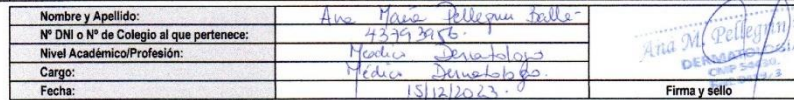 Nombre y Apellido: Ana María Pellegrin Balle-
Nº DNI o Nº de Colegio al que pertenece: 43793956.
Nivel Académico/Profesión: Medico Dermatologo
Cargo: Médico Dermatologo.
Fecha: 15/12/2023.
Ana M. Pellegrin
DERMATOLOGIA
CMP 54630.
Firma y sello